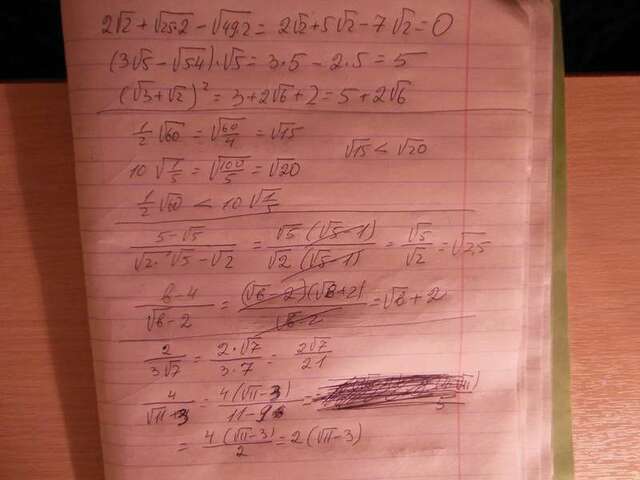 2√2 + √25·2 − √49·2 = 2√2 + 5√2 − 7√2 = 0
(3√5 − √5·4)·√5 = 3·5 − 2·5 = 5
(√3 + √2)² = 3 + 2√6 + 2 = 5 + 2√6
1/2 √60 = √60/4 = √15
√15 < √20
10 √1/5 = √100/5 = √20
1/2 √60 < 10 √1/5
5−√5 / √2·√5 − √2 = √5 (√5 − 1) / √2 (√5 − 1) = √5/√2 = √2,5
в − 4 / √в − 2 = (√в − 2)(√в + 2) / √в − 2 = √в + 2
2 / 3√7 = 2·√7 / 3·7 = 2√7 / 21
4 / √11 + 3 = 4(√11 − 3) / 11 − 9 =
= 4(√11 − 3) / 2 = 2(√11 − 3)